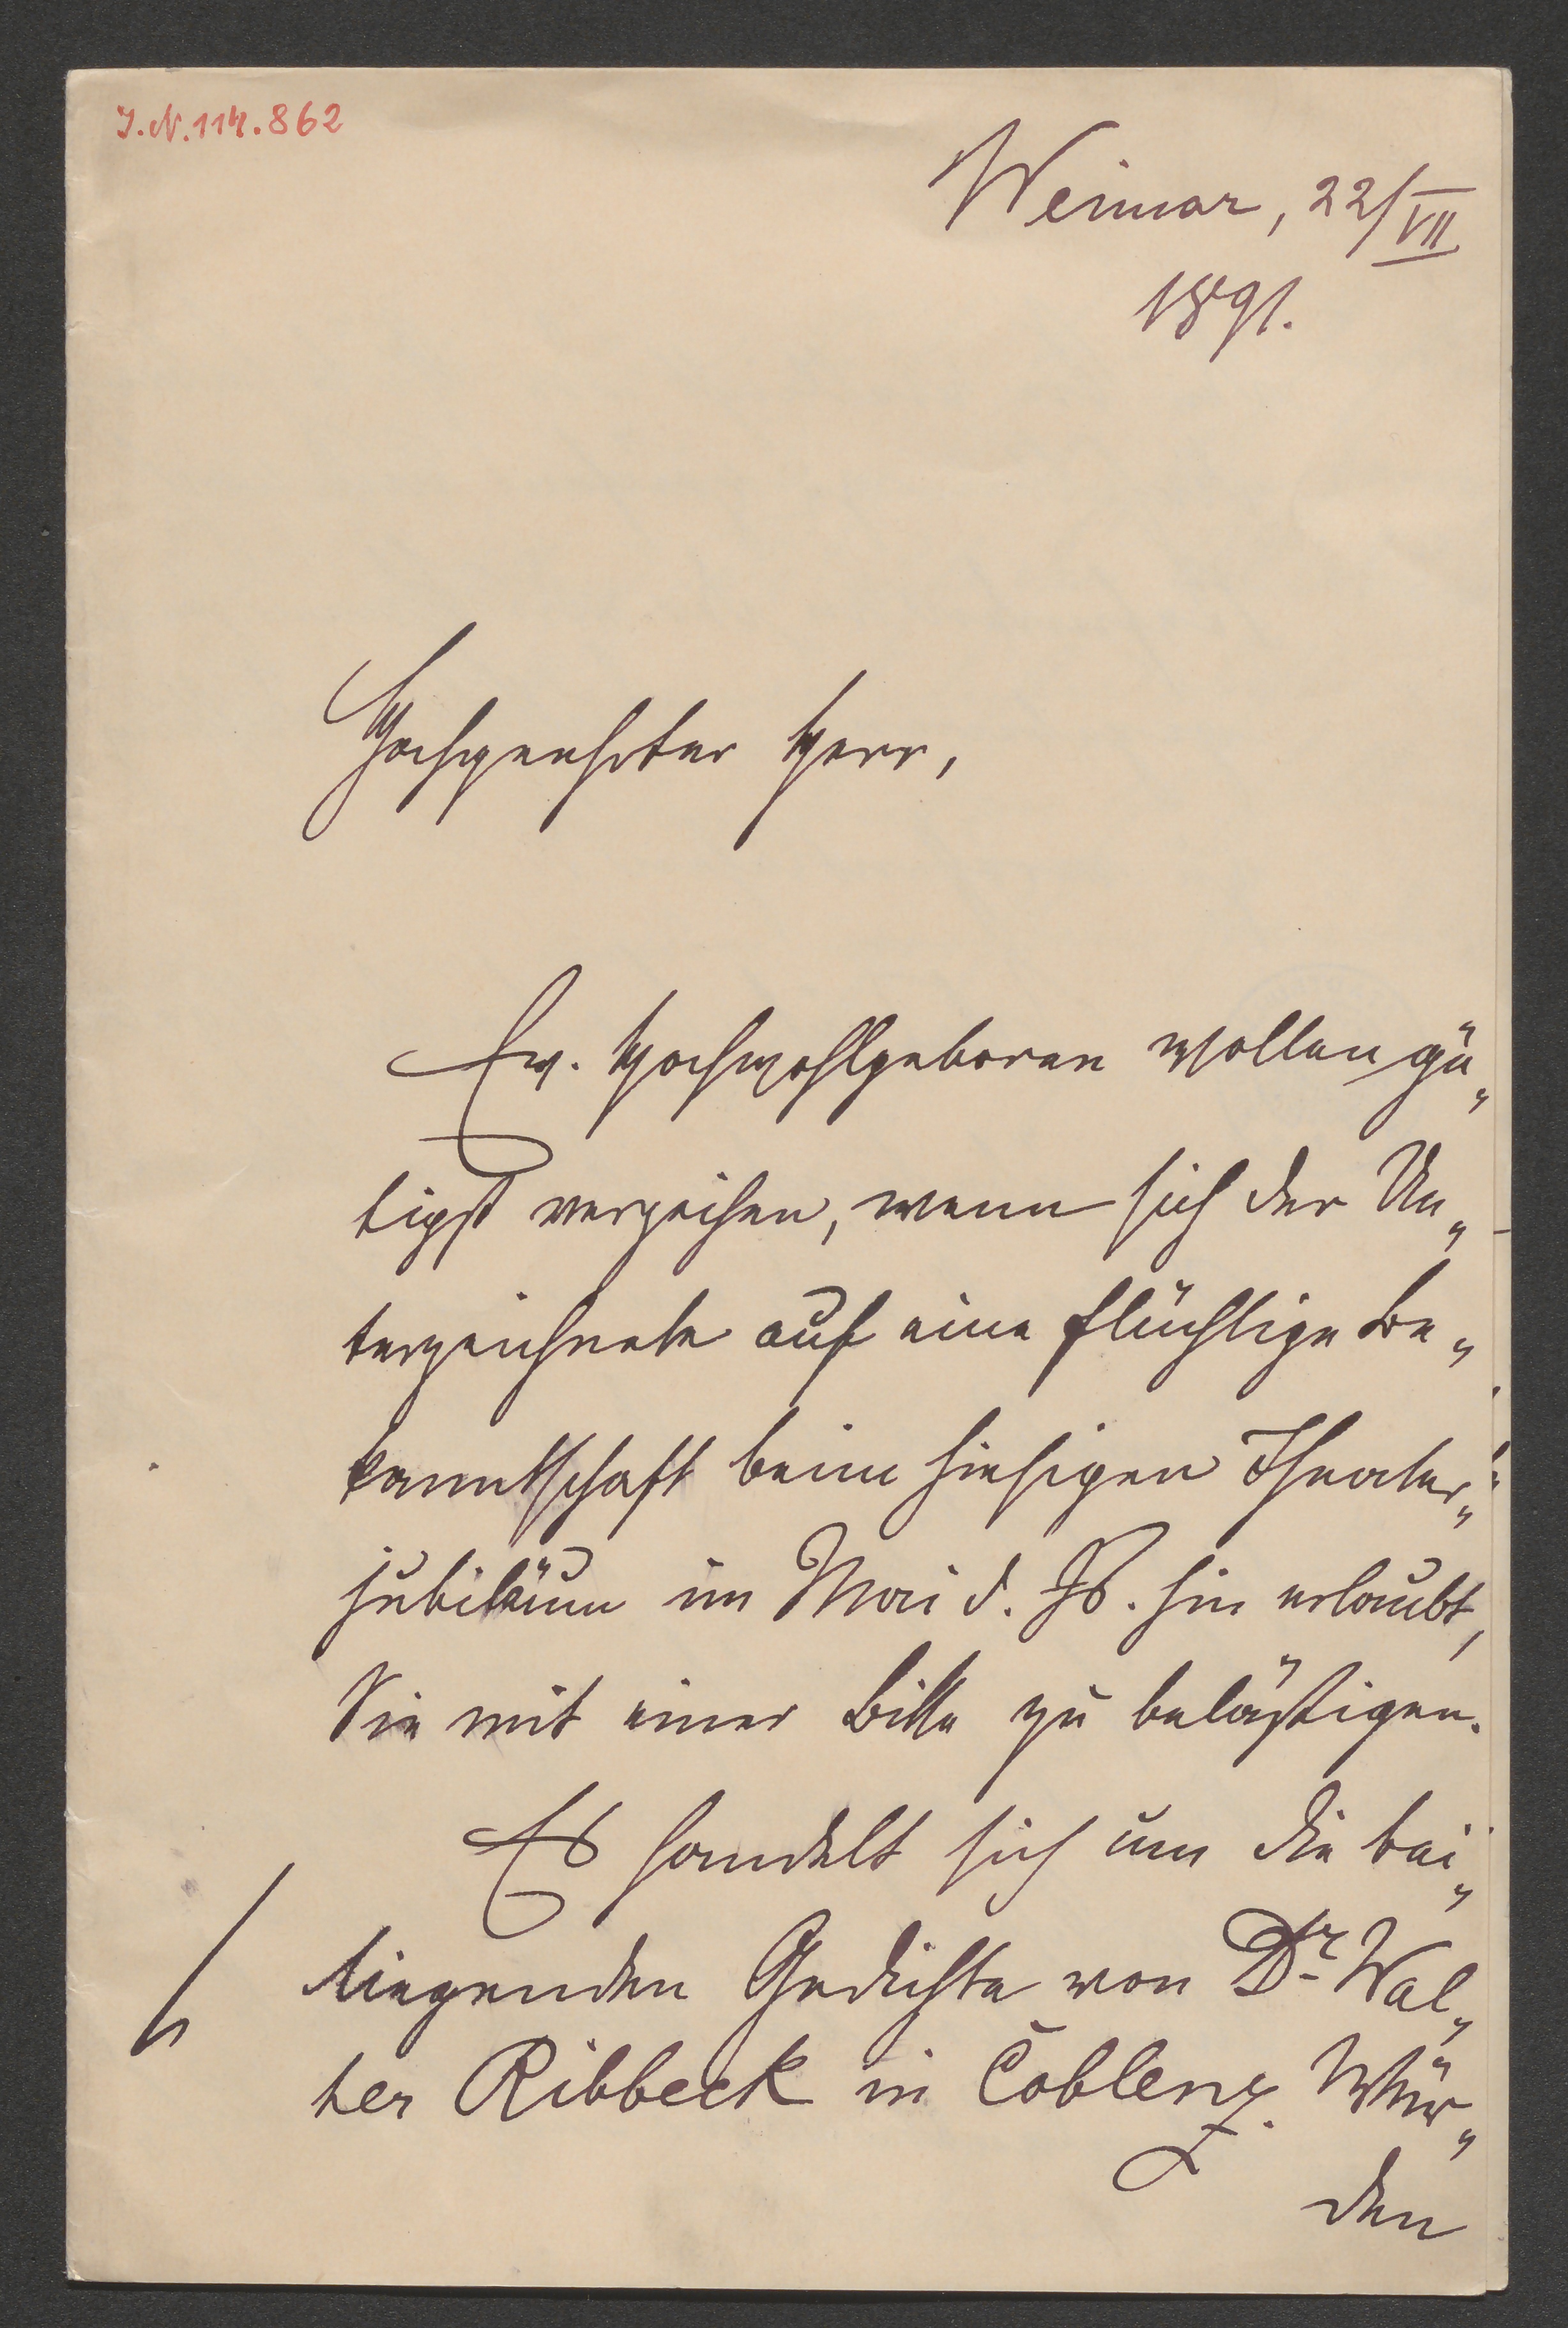 J.N. 114.862
Weimar, 22/VII
1891.
Hochgeehrter Herr,
Ew. Hochwohlgeboren wollen gü„
tigst verzeihen, wenn sich der Un„
terzeichnete auf eine flüchtige Be„
kanntschaft beim hiesigen Theater„
jubiläum im Mai d. Js. hin erlaubt,
Sie mit einer Bitte zu belästigen.
Es handelt sich um die bei„
liegenden Gedichte von Dr Wal„
ter Ribbeck in Coblenz. Wür„
den